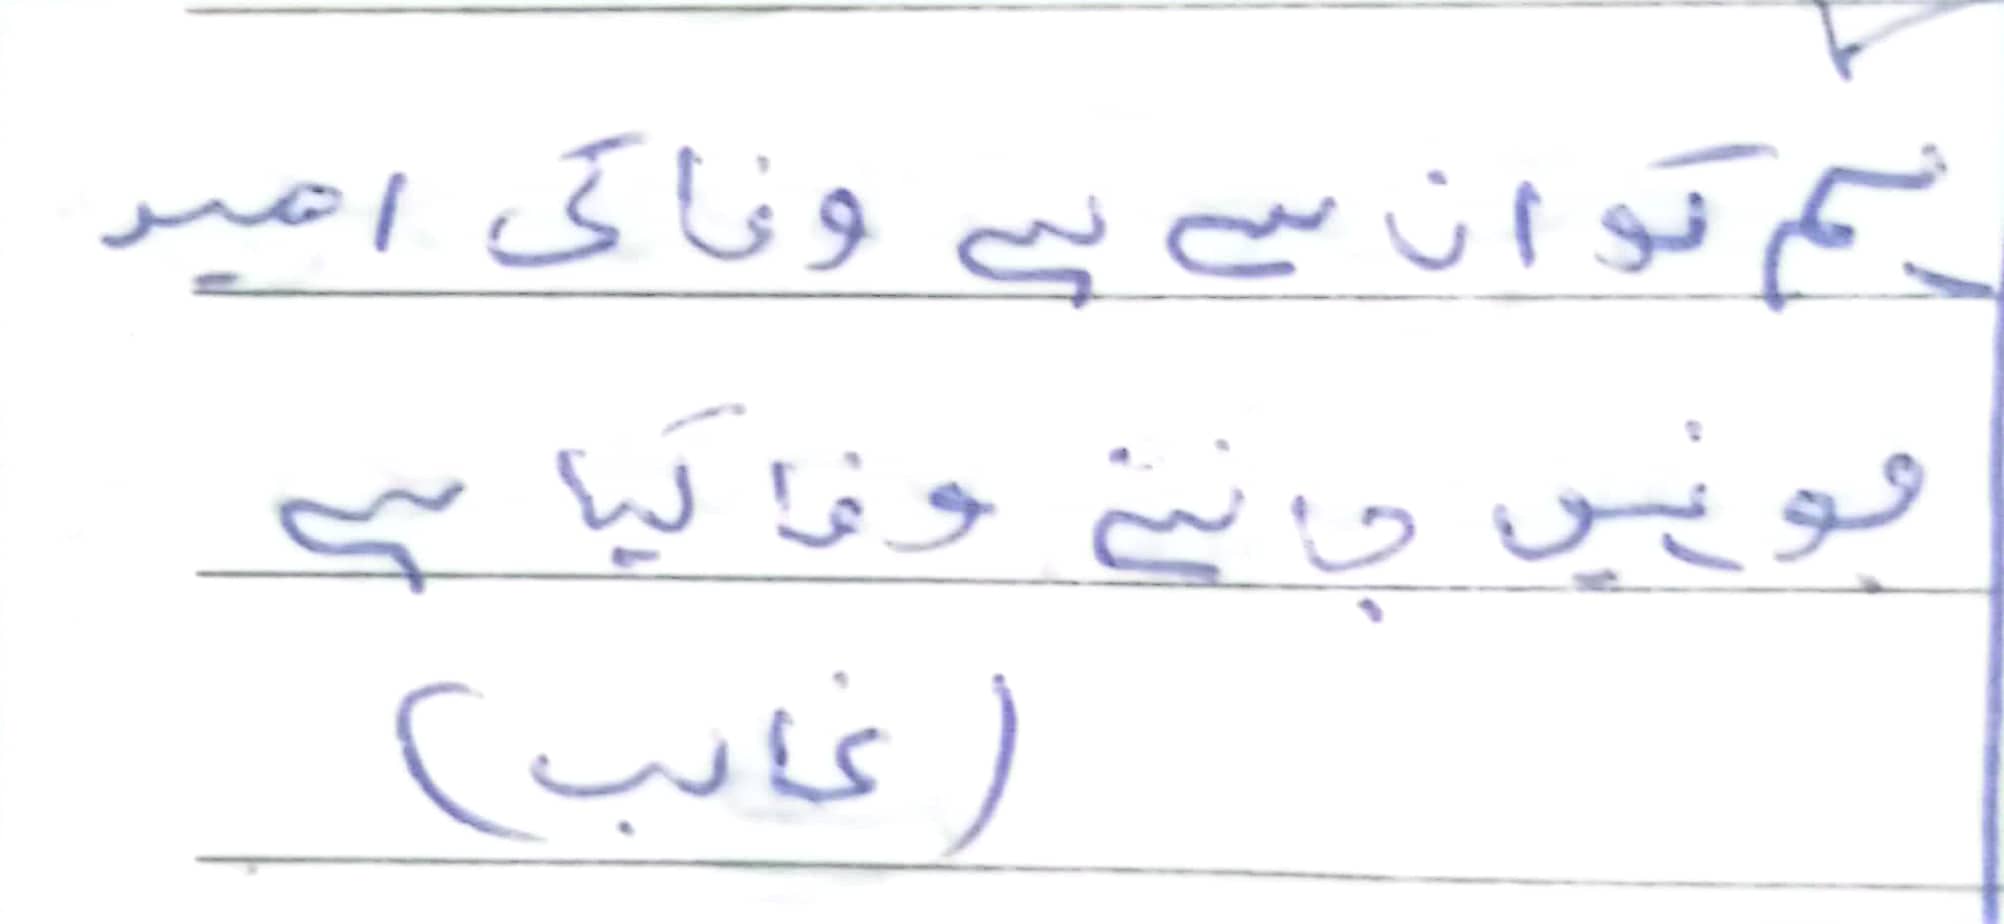 ہم کو ان سے ہے وفا کی امید
جو نہیں جانتے وفا کیا ہے
(غالب)